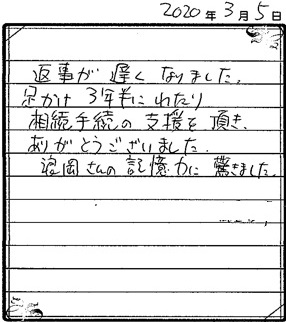 2020年3月5日
返事が遅くなりました。
足かけ3年半にわたり
相続手続の支援を頂き、
ありがとうございました。
寝岡さんの記憶力に驚きました。